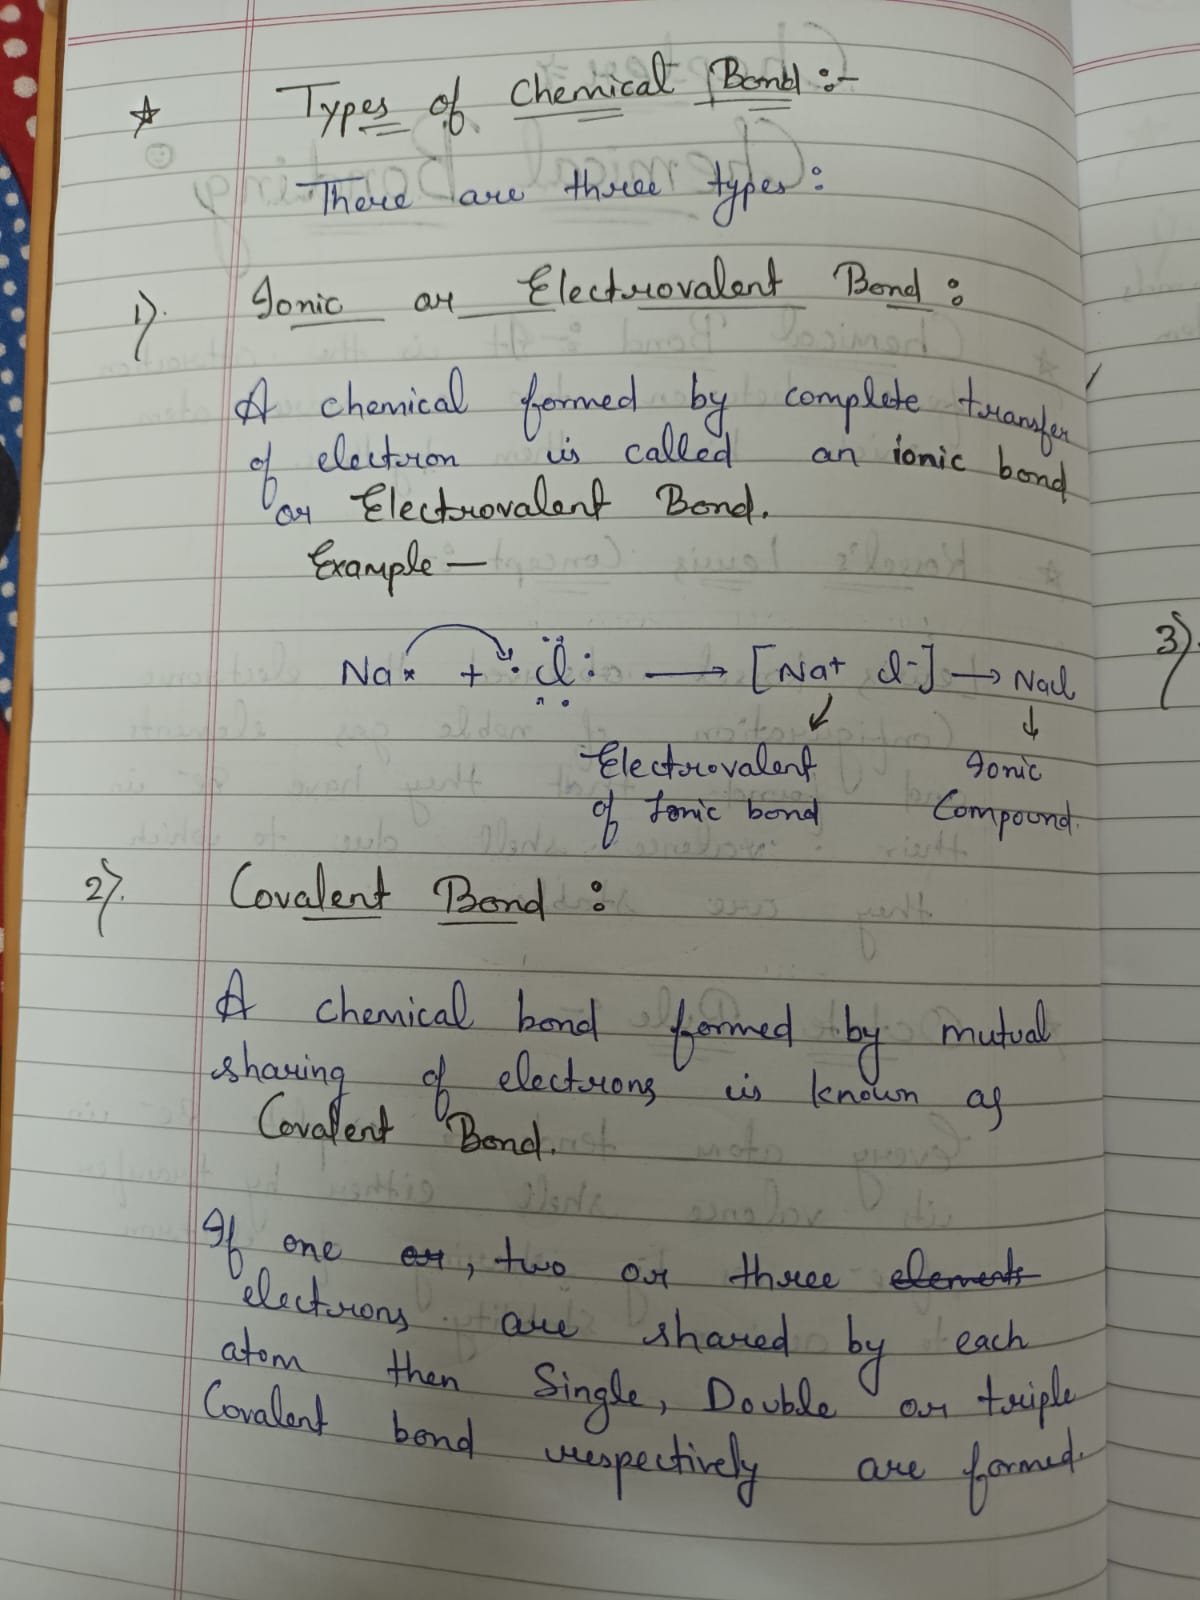 ☆ Types of Chemical Bond :-
There are three types :
1). Ionic or Electrovalent Bond :
A chemical formed by complete transfer
of electron is called an ionic bond
or Electrovalent Bond.
Example —
Na× + :Cl: ⟶ [Na+ Cl-] ⟶ NaCl
Electrovalent Ionic
of Ionic bond Compound.
2). Covalent Bond :
A chemical bond formed by mutual
sharing of electrons is known as
Covalent Bond.
If one or, two or three elements
electrons are shared by each
atom then Single, Double or triple
Covalent bond respectively are formed.
3).